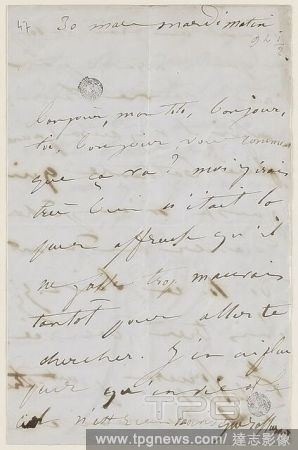 47
30 mars mardi matin
9h ½
Bonjour, mon toto, bonjour,
toi, bonjour, vous comment
que ça va? moi j'irais
très bien si c'était la
peur affreuse qu'il
ne fasse trop mauvais
tantôt pour aller te
chercher. J'en ai plus
peur qu'envie
n'est
TPG
www.tpgnews.com | 達志影像